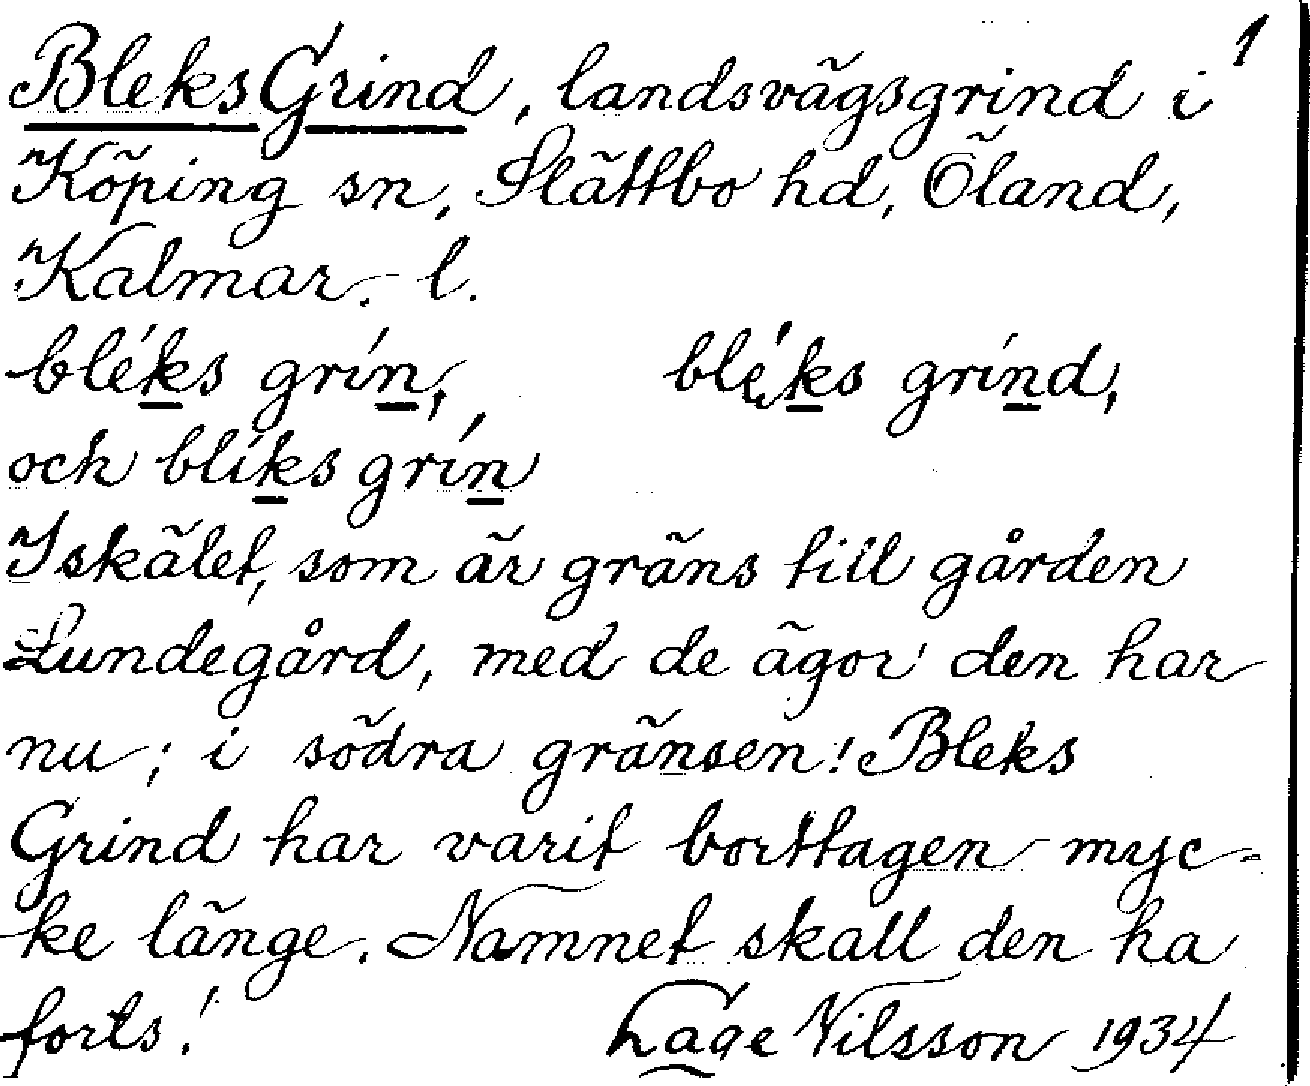 1
Bleks Grind, landsvägsgrind i
Köping sn, Slättbo hd, Öland,
Kalmar. l.
bléks grín, bléks grínd,
och blíks grín
I skälet, som är gräns till gården
Lundegård, med de ägor den har
nu; i södra gränsen! Bleks
Grind har varit borttagen myc-
ke länge. Namnet skall den ha
forts! Lage Nilsson 1934